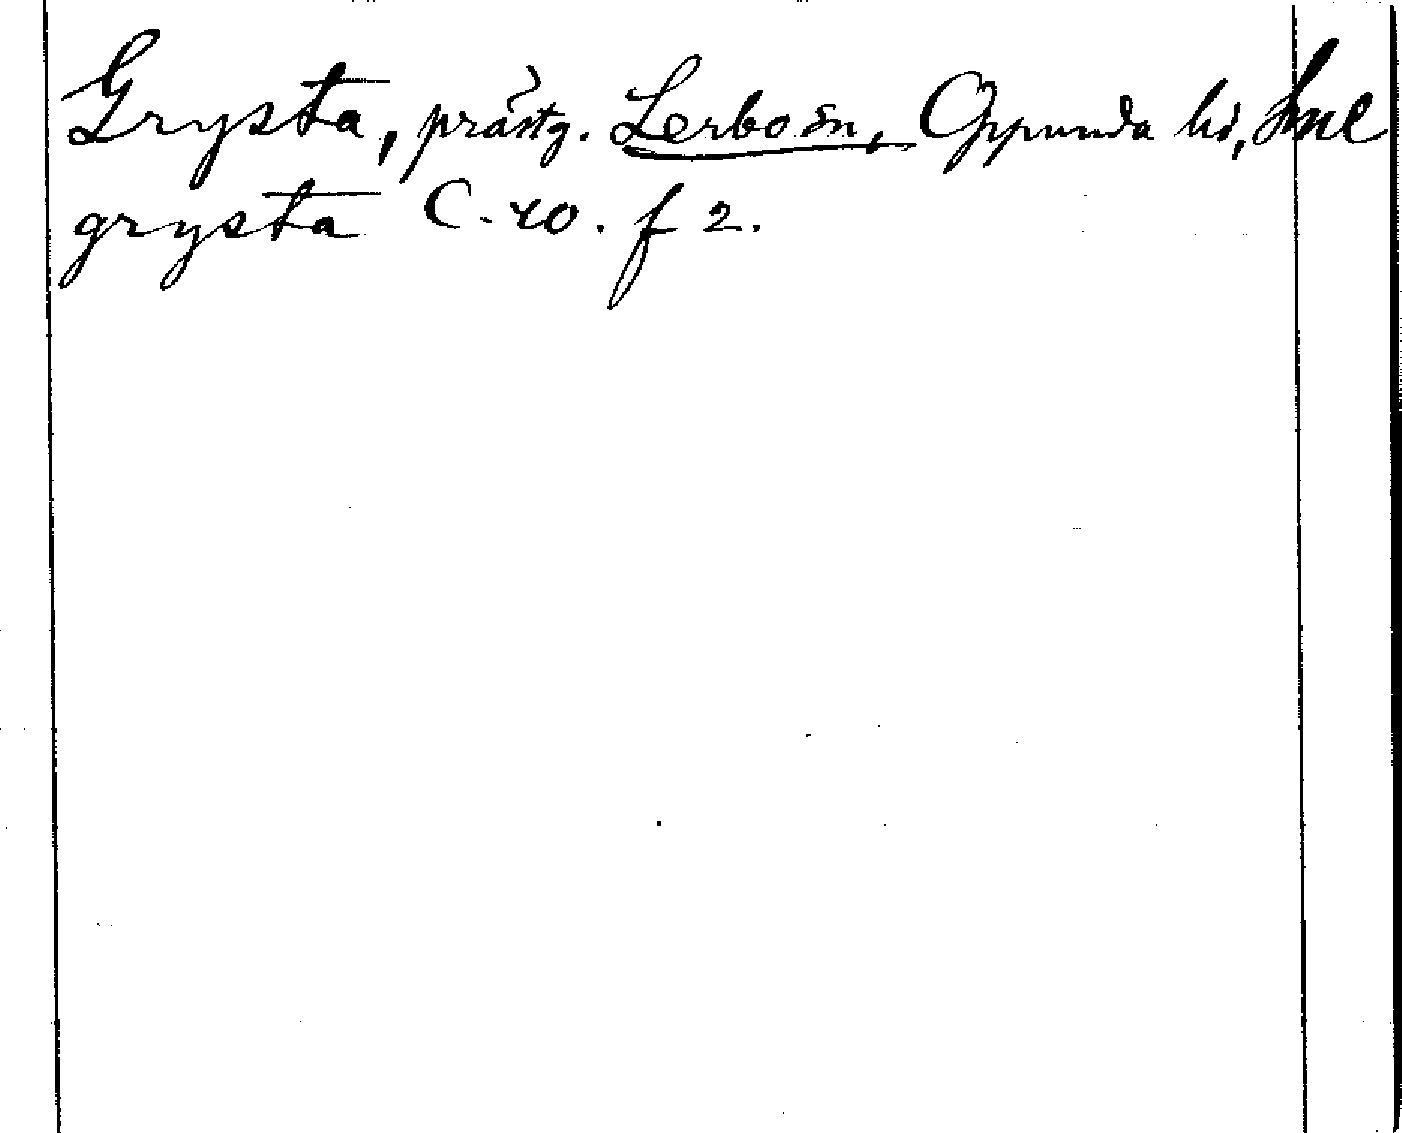 Grysta, prästg. Lerbo sn, Oppunda hd, Sml
grysta C. 40. f 2.